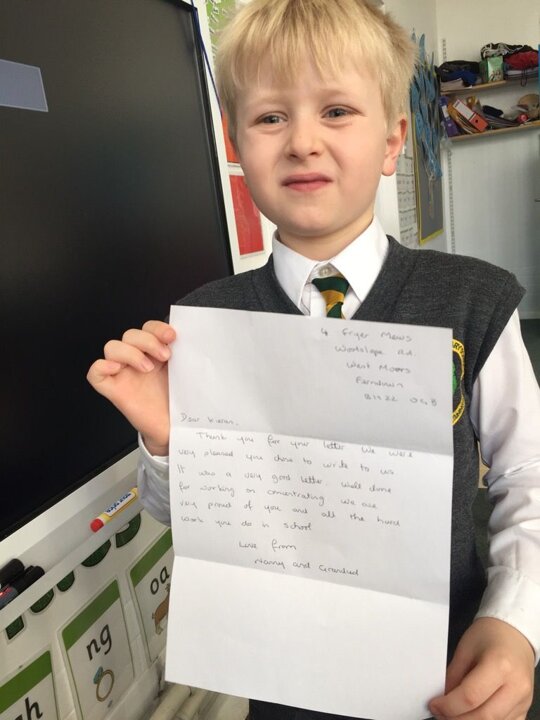 4 Fryer Mews
Woolslope Rd
West Moors
Ferndown
BH22
Dear Kieran,
Thank you for your letter We were
very pleased you chose to write to us
It was a very good letter Well done
for working on concentrating we are
very proud of you and all the hard
work you do in school
Love from
Nanny and Grandad
oa
ng